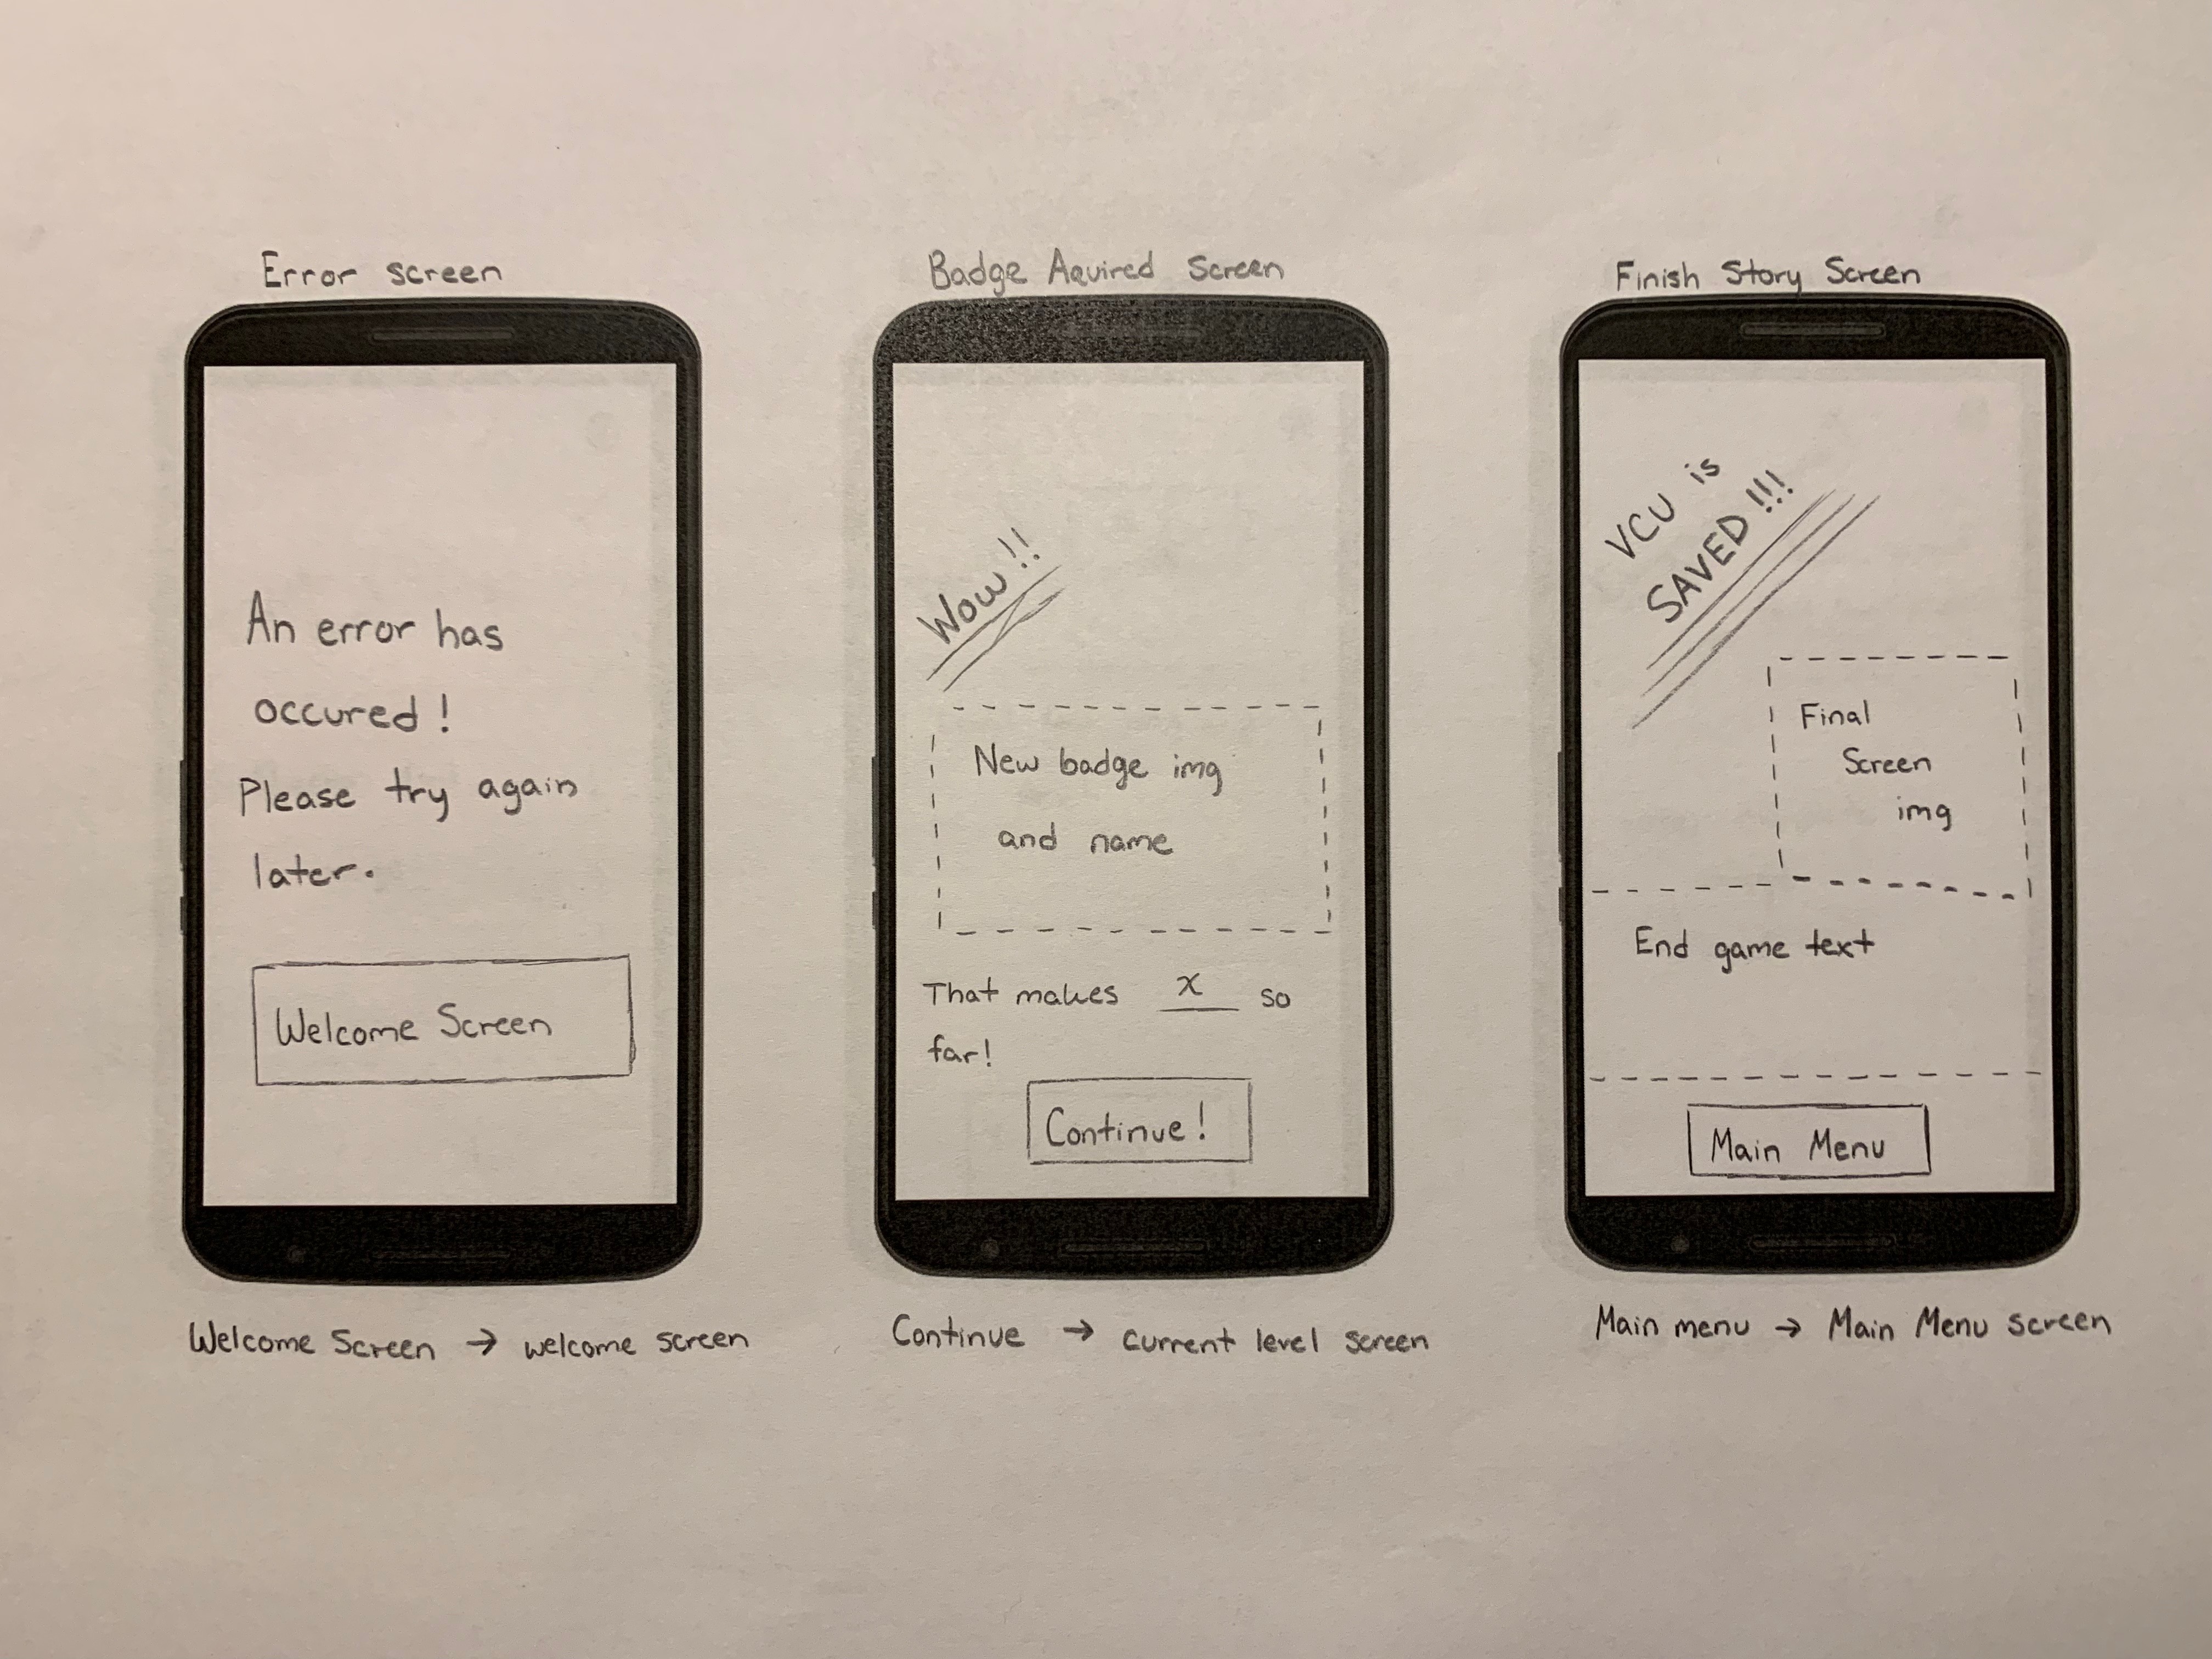 Error screen
An error has
occured!
Please try again
later.
Welcome Screen
Welcome Screen → welcome screen
Badge Aquired Screen
Wow!!
New badge img
and name
That makes x so
far!
Continue!
Continue → current level screen
Finish Story Screen
VCU is
SAVED!!!
Final
Screen
img
End game text
Main Menu
Main menu → Main Menu screen